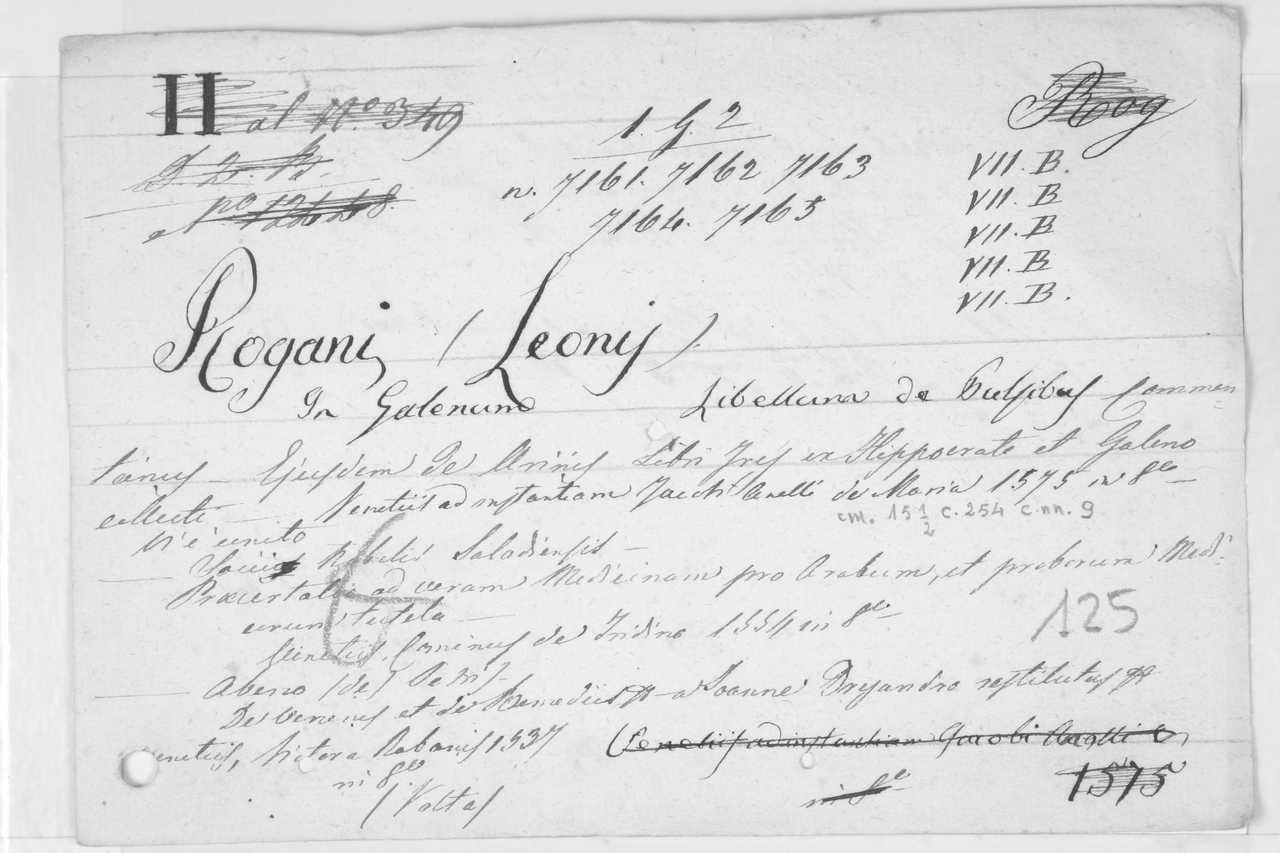 H al N.º 349
1. G. 2
Roog
n. 7161. 7162 7163
7164. 7165
VII. B.
VII. B
VII. B
VII. B
VII. B.
Rogani (Leonis)
In Galenum Libellum de Pulsibus Commen=
tarius — Ejusdem de Urinis Libri Tres ex Hippocrate et Galeno
collecti — Venetiis ad instantiam Jacobi Anelli de Maria 1575 in 8º —
cm. 15 1/2 c. 254 c. nn. 9
Vi è unito
Saladiensis —
ad veram Medicinam pro Arabum, et proborum Medi=
corum tutela —
125
Venetiis, Cominus de Tridino 1554 in 8º —
— Abano (de) Petri
De Venenis et de Remediis — a Joanne Dryandro restitutus
Venetiis, Victor a Rabanis 1537 (Venetiis ad instantiam Jacobi Anelli
in 8º
in 8º
1575
(Volta)